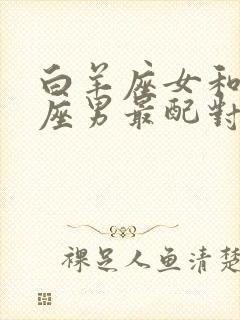 白羊座女和
座男最配對
裸足人鱼清楚